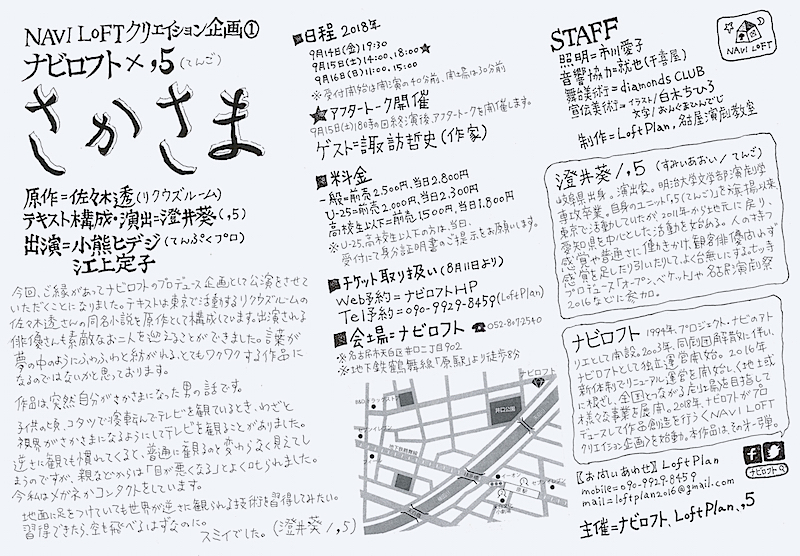 NAVI LOFTクリエイション企画①
ナビロフト×,5(てんご)
さかさま
原作=佐々木透(リクウズルーム)
テキスト構成・演出=澄井葵(,5)
出演=小熊ヒデジ(てんぷくプロ)
江上定子
今回、ご縁があってナビロフトのプロデュース企画として公演をさせて
いただくことになりました。テキストは東京で活動するリクウズルームの
佐々木透さんの同名小説を原作として構成しています。出演される
俳優さんも素敵なお二人を迎えることができました。言葉が
夢の中のようにふわふわと紡がれる、とてもワクワクする作品に
なるのではないかと思っております。
作品は突然自分がさかさまになった男の話です。
子供の頃、コタツで寝転んでテレビを観ているとき、わざと
視界がさかさまになるようにしてテレビを観ることがありました。
逆さに観ても慣れてくると、普通に観るのと変わらなく見えてし
まうのですが、親などからは「目が悪くなる」とよく叱られました。
今私はメガネかコンタクトをしています。
地面に足をつけていても世界が逆さに観られる技術を習得してみたい。
習得できたら、空も飛べるはずなのに。
スミイでした。(澄井葵/,5)
■日程 2018年
9月14日(金)19:30
9月15日(土)14:00、18:00★
9月16日(日)11:00、15:00
※受付開始は開演の40分前、開場は30分前
★アフタートーク開催
9月15日(土)18時の回終演後、アフタートークを開催します。
ゲスト=諏訪哲史(作家)
■料金
一般=前売2,500円、当日2,800円
U-25=前売2,000円、当日2,300円
高校生以下=前売1,500円、当日1,800円
※U-25、高校生以下の方は、当日、
受付にて身分証明書のご提示をお願います。
■チケット取り扱い(8月11日より)
Web予約=ナビロフトHP
Tel予約=090-9929-8459(LoftPlan)
■会場=ナビロフト ☎052-807-2540
※名古屋市天白区井口二丁目902
※地下鉄鶴舞線「原駅」より徒歩8分
ナビロフト
井口公園
STAFF
照明=市川愛子
音響協力=就也(千喜屋)
舞台美術=diamonds CLUB
宣伝美術=イラスト/白木ちひろ
文字/おんぐまひんでじ
制作=LoftPlan、名古屋演劇教室
NAVI LOFT
澄井葵/,5(すみいあおい/てんご)
岐阜県出身。演出家。明治大学文学部演劇学
専攻卒業。自身のユニット「,5(てんご)」を旗揚げ以来
東京で活動していたが2011年から地元に戻り、
愛知県を中心とした活動を始める。人の持つ
感覚や普通さに働きかけ、観客俳優問わず
感覚を足したり引いたりしてよく台無しにする。七ツ寺
プロデュース「オープン、ベケット」や名古屋演劇祭
2016などに参加。
ナビロフト 1994年、プロジェクト・ナビのアト
リエとして開設。2003年、同劇団解散に伴い、
ナビロフトとして独立運営開始。2016年
新体制でリニューアル運営を開始し、地土或
に根ざし、全国とつながる虎止場を目指して
様々な事業を展開。2018年、ナビロフトがプロ
デュースして作品創造を行うく NAVI LOFT
クリエイション企画〉を始動。本作品はその第一弾。
【お問いあわせ】LoftPlan
mobile=090-9929-8459
mail=loftplan2016@gmail.com
ナビロフト
主催=ナビロフト、LoftPlan、,5